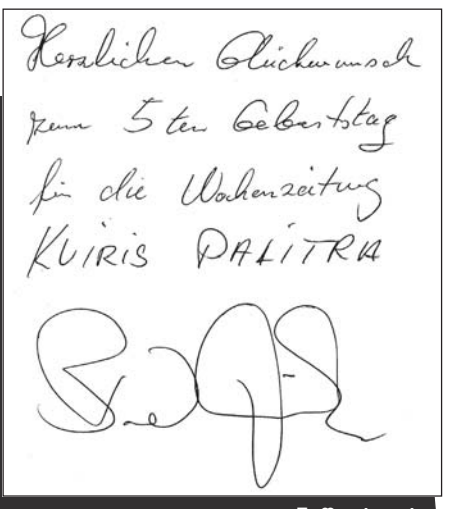 Herzlichen Glückwunsch
zum 5ten Geburtstag
für die Wochenzeitung
KVIRIS PALITRA